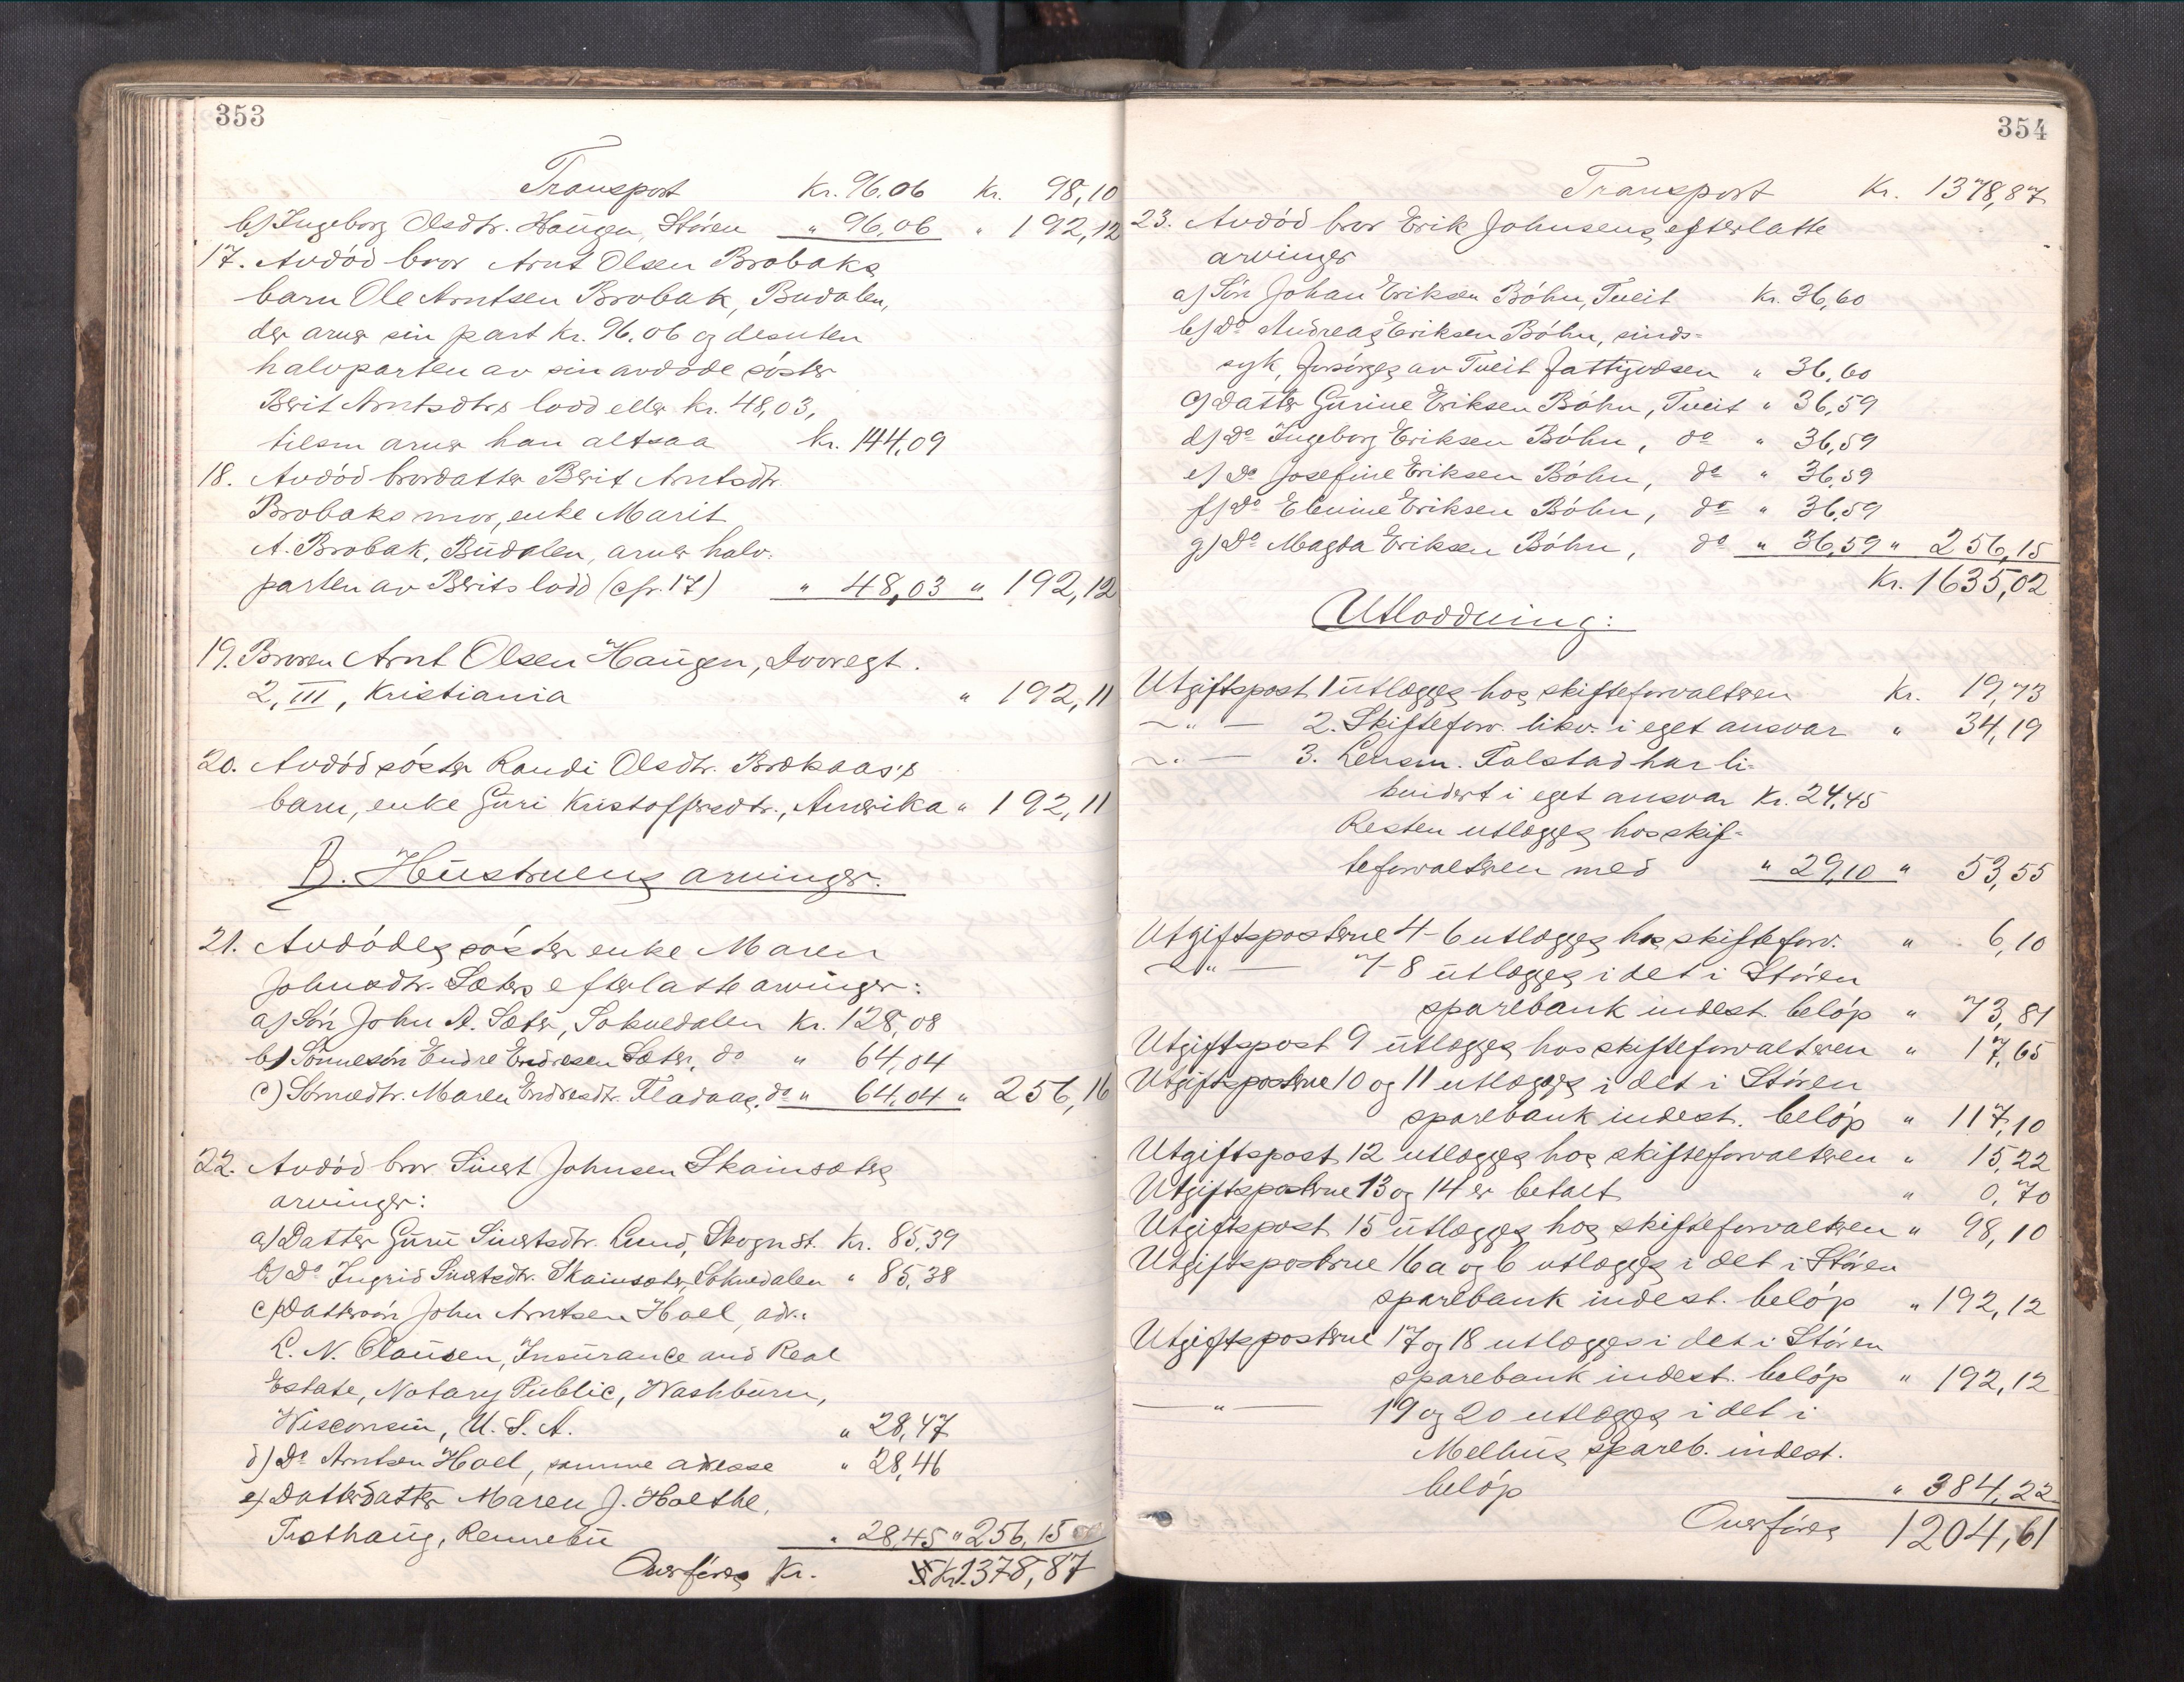 353
Transport Kr. 96.06 Kr. 98,10
b) Ingeborg Olsdtr. Haugen, Stören " 96,06 " 192,12
17. Avdöd bror Arnt Olsen Brobaks
barn Ole Arntsen Brobak, Budalen,
der arver sin part Kr. 96.06 og desuten
halvparten av sin avdöde söster
Berit Arntsdtrs lodd eller kr. 48,03,
tilsm arver han altsaa Kr. 144,09
18. Avdöd brordatter Berit Arntsdtr.
Brobaks mor, enke Marit
A. Brobak, Budalen, arver halv-
parten av Berits lodd (cfr. 17) " 48,03 " 192,12
19. Broren Arnt Olsen Haugen, Dovregt.
2, III, Kristiania " 192,11
20. Avdöd söster Randi Olsdtr. Brækaas's
barn, enke Guri Kristoffersdtr., Amerika " 192,11
B. Hustruens arvinger.
21. Avdödes söster enke Maren
Johnsdtr. Sæters efterlatte arvinger:
a) Sön John A. Sæter, Soknedalen Kr. 128,08
b) Sönnesön Endre Endresen Sæter, do " 64,04
c) Sönnedtr. Maren Endresdtr. Fladaas, do " 64,04 " 256,16
22. Avdöd bror Sivert Johnsen Skainsæters
arvinger:
a) Datter Guru Sivertsdtr. Lund, Skogn st. Kr. 85,39
b) Do Ingrid Sivertsdtr. Skainsæter, Soknedalen " 85,38
c) Dattersön John Arntsen Hoel, adr.:
L. N. Clausen, Insurance and Real
Estate, Notary Public, Washburn,
Wisconsin, U. S. A. " 28,47
d) Do Arntsen Hoel, samme adresse " 28,46
e) Datterdatter Maren J. Holthe,
Trothaug, Rennebu " 28,45 " 256,15
Overföres Kr. Kr. 1378,87
354
Transport Kr. 1378,87
23. Avdöd bror Erik Johnsens efterlatte
arvinger
a) Sön Johan Eriksen Böhn, Tveit Kr. 36,60
b) Do Andreas Eriksen Böhn, sinds-
syk, forsörges av Tveit fattigvæsen " 36,60
c) Datter Gurine Eriksen Böhn, Tveit " 36,59
d) Do Ingeborg Eriksen Böhn, do " 36,59
e) Do Josefine Eriksen Böhn, do " 36,59
f) Do Elevine Eriksen Böhn, do " 36,59
g) Do Magda Eriksen Böhn, do " 36,59 " 256,15
Kr. 1635,02
Utlodning:
Utgiftspost 1 utlægges hos skifteforvalteren Kr. 19,73
— " — 2. Skifteforv. likv. i eget ansvar " 34,19
— " — 3. Lensm. Folstad har li-
kvidert i eget ansvar Kr. 24,45
Resten utlægges hos skif-
teforvalteren med " 29,10 " 53,55
Utgiftsposterne 4-6 utlægges hos skifteforv. " 6,10
— " — 7-8 utlægges i det i Stören
sparebank indest. belöp " 73,81
Utgiftspost 9 utlægges hos skifteforvalteren " 17,65
Utgiftsposterne 10 og 11 utlægges i det i Stören
sparebank indest. belöp " 117,10
Utgiftspost 12 utlægges hos skifteforvalteren " 15,22
Utgiftsposterne 13 og 14 er betalt " 0,70
Utgiftspost 15 utlægges hos skifteforvalteren " 98,10
Utgiftsposterne 16 a og b utlægges i det i Stören
sparebank indest. belöp " 192,12
Utgiftsposterne 17 og 18 utlægges i det i Stören
sparebank indest. belöp " 192,12
— " — 19 og 20 utlægges i det i
Melhus spareb. indest.
belöp " 384,22
Overföres 1204,61